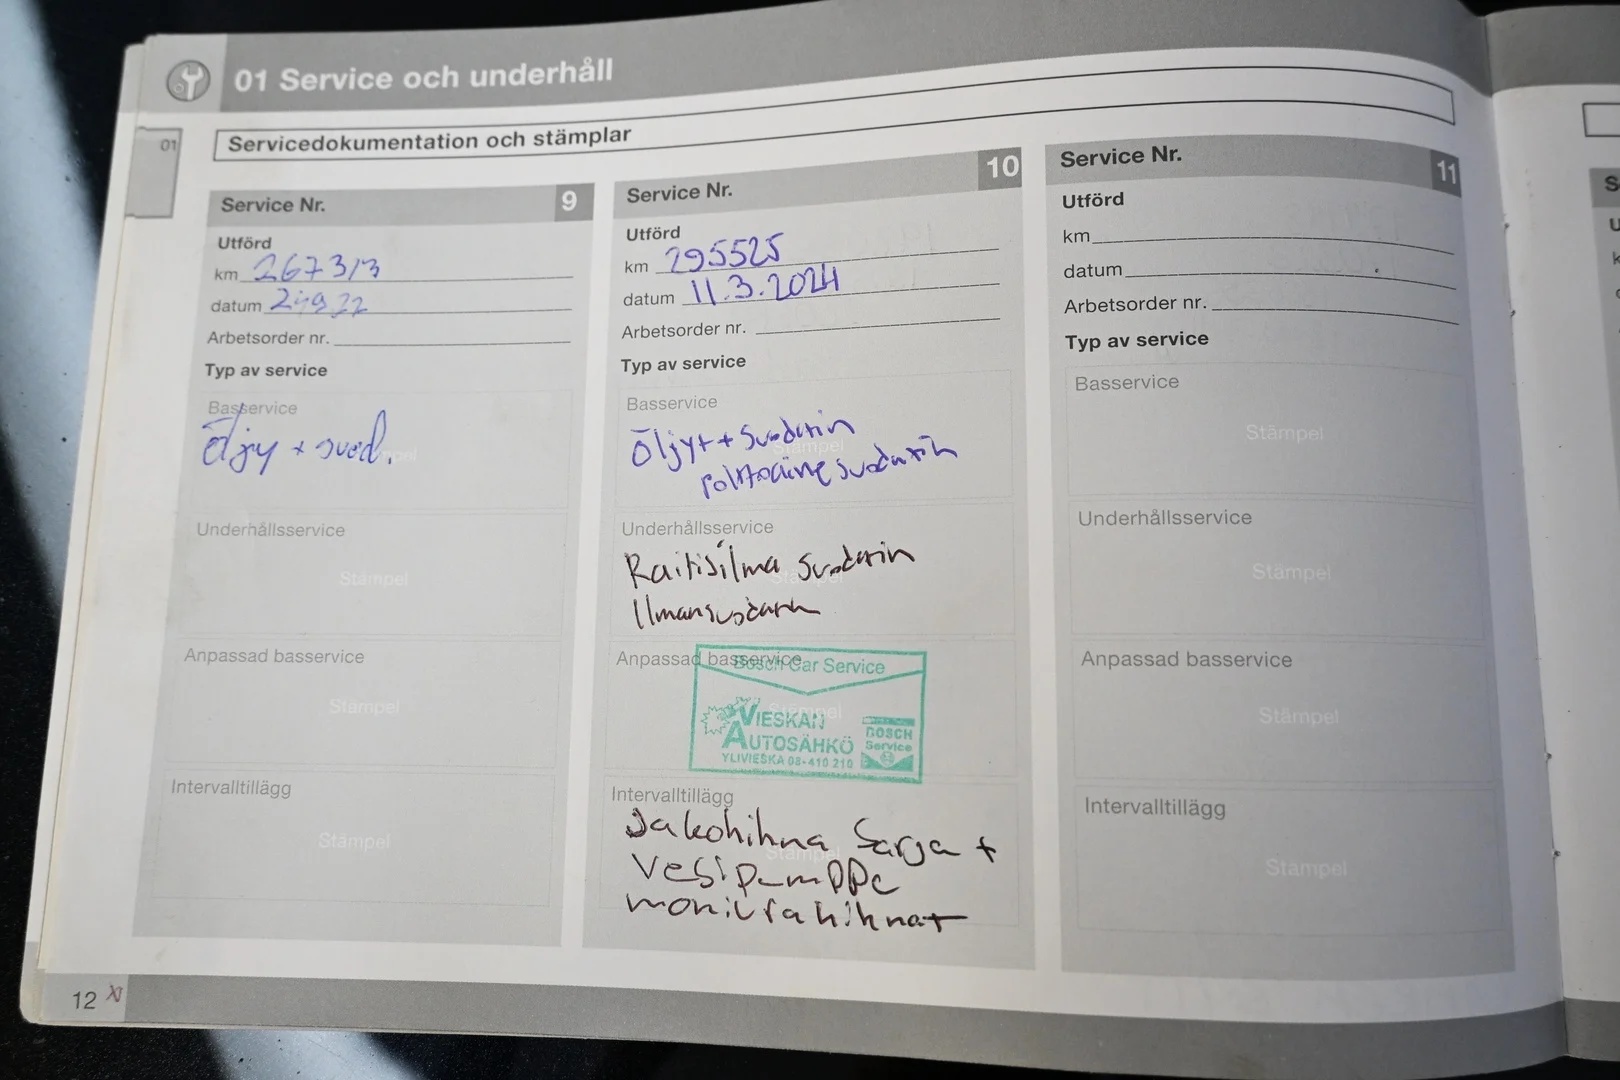 01 Service och underhåll
01
Servicedokumentation och stämplar
Service Nr. 9
Utförd
km 267313
datum
Arbetsorder nr.
Typ av service
Basservice
Öljy + suod.
Underhållsservice
Stämpel
Anpassad basservice
Stämpel
Intervalltillägg
Stämpel
Service Nr. 10
Utförd
km 295525
datum 11.3.2024
Arbetsorder nr.
Typ av service
Basservice
Stämpel
Öljyt + suodatin
polttoaine suodatin
Underhållsservice
Raitisilma suodatin
Stämpel
Ilmansuodatin
Anpassad basservice
Bosch Car Service
Stämpel
VIESKAN
AUTOSÄHKÖ
YLIVIESKA 08-410 210
BOSCH
Service
Intervalltillägg
Jakohihna Sarja +
Stämpel
vesipumppu
moniurahihnat
Service Nr. 11
Utförd
km
datum
Arbetsorder nr.
Typ av service
Basservice
Stämpel
Underhållsservice
Stämpel
Anpassad basservice
Stämpel
Intervalltillägg
Stämpel
12